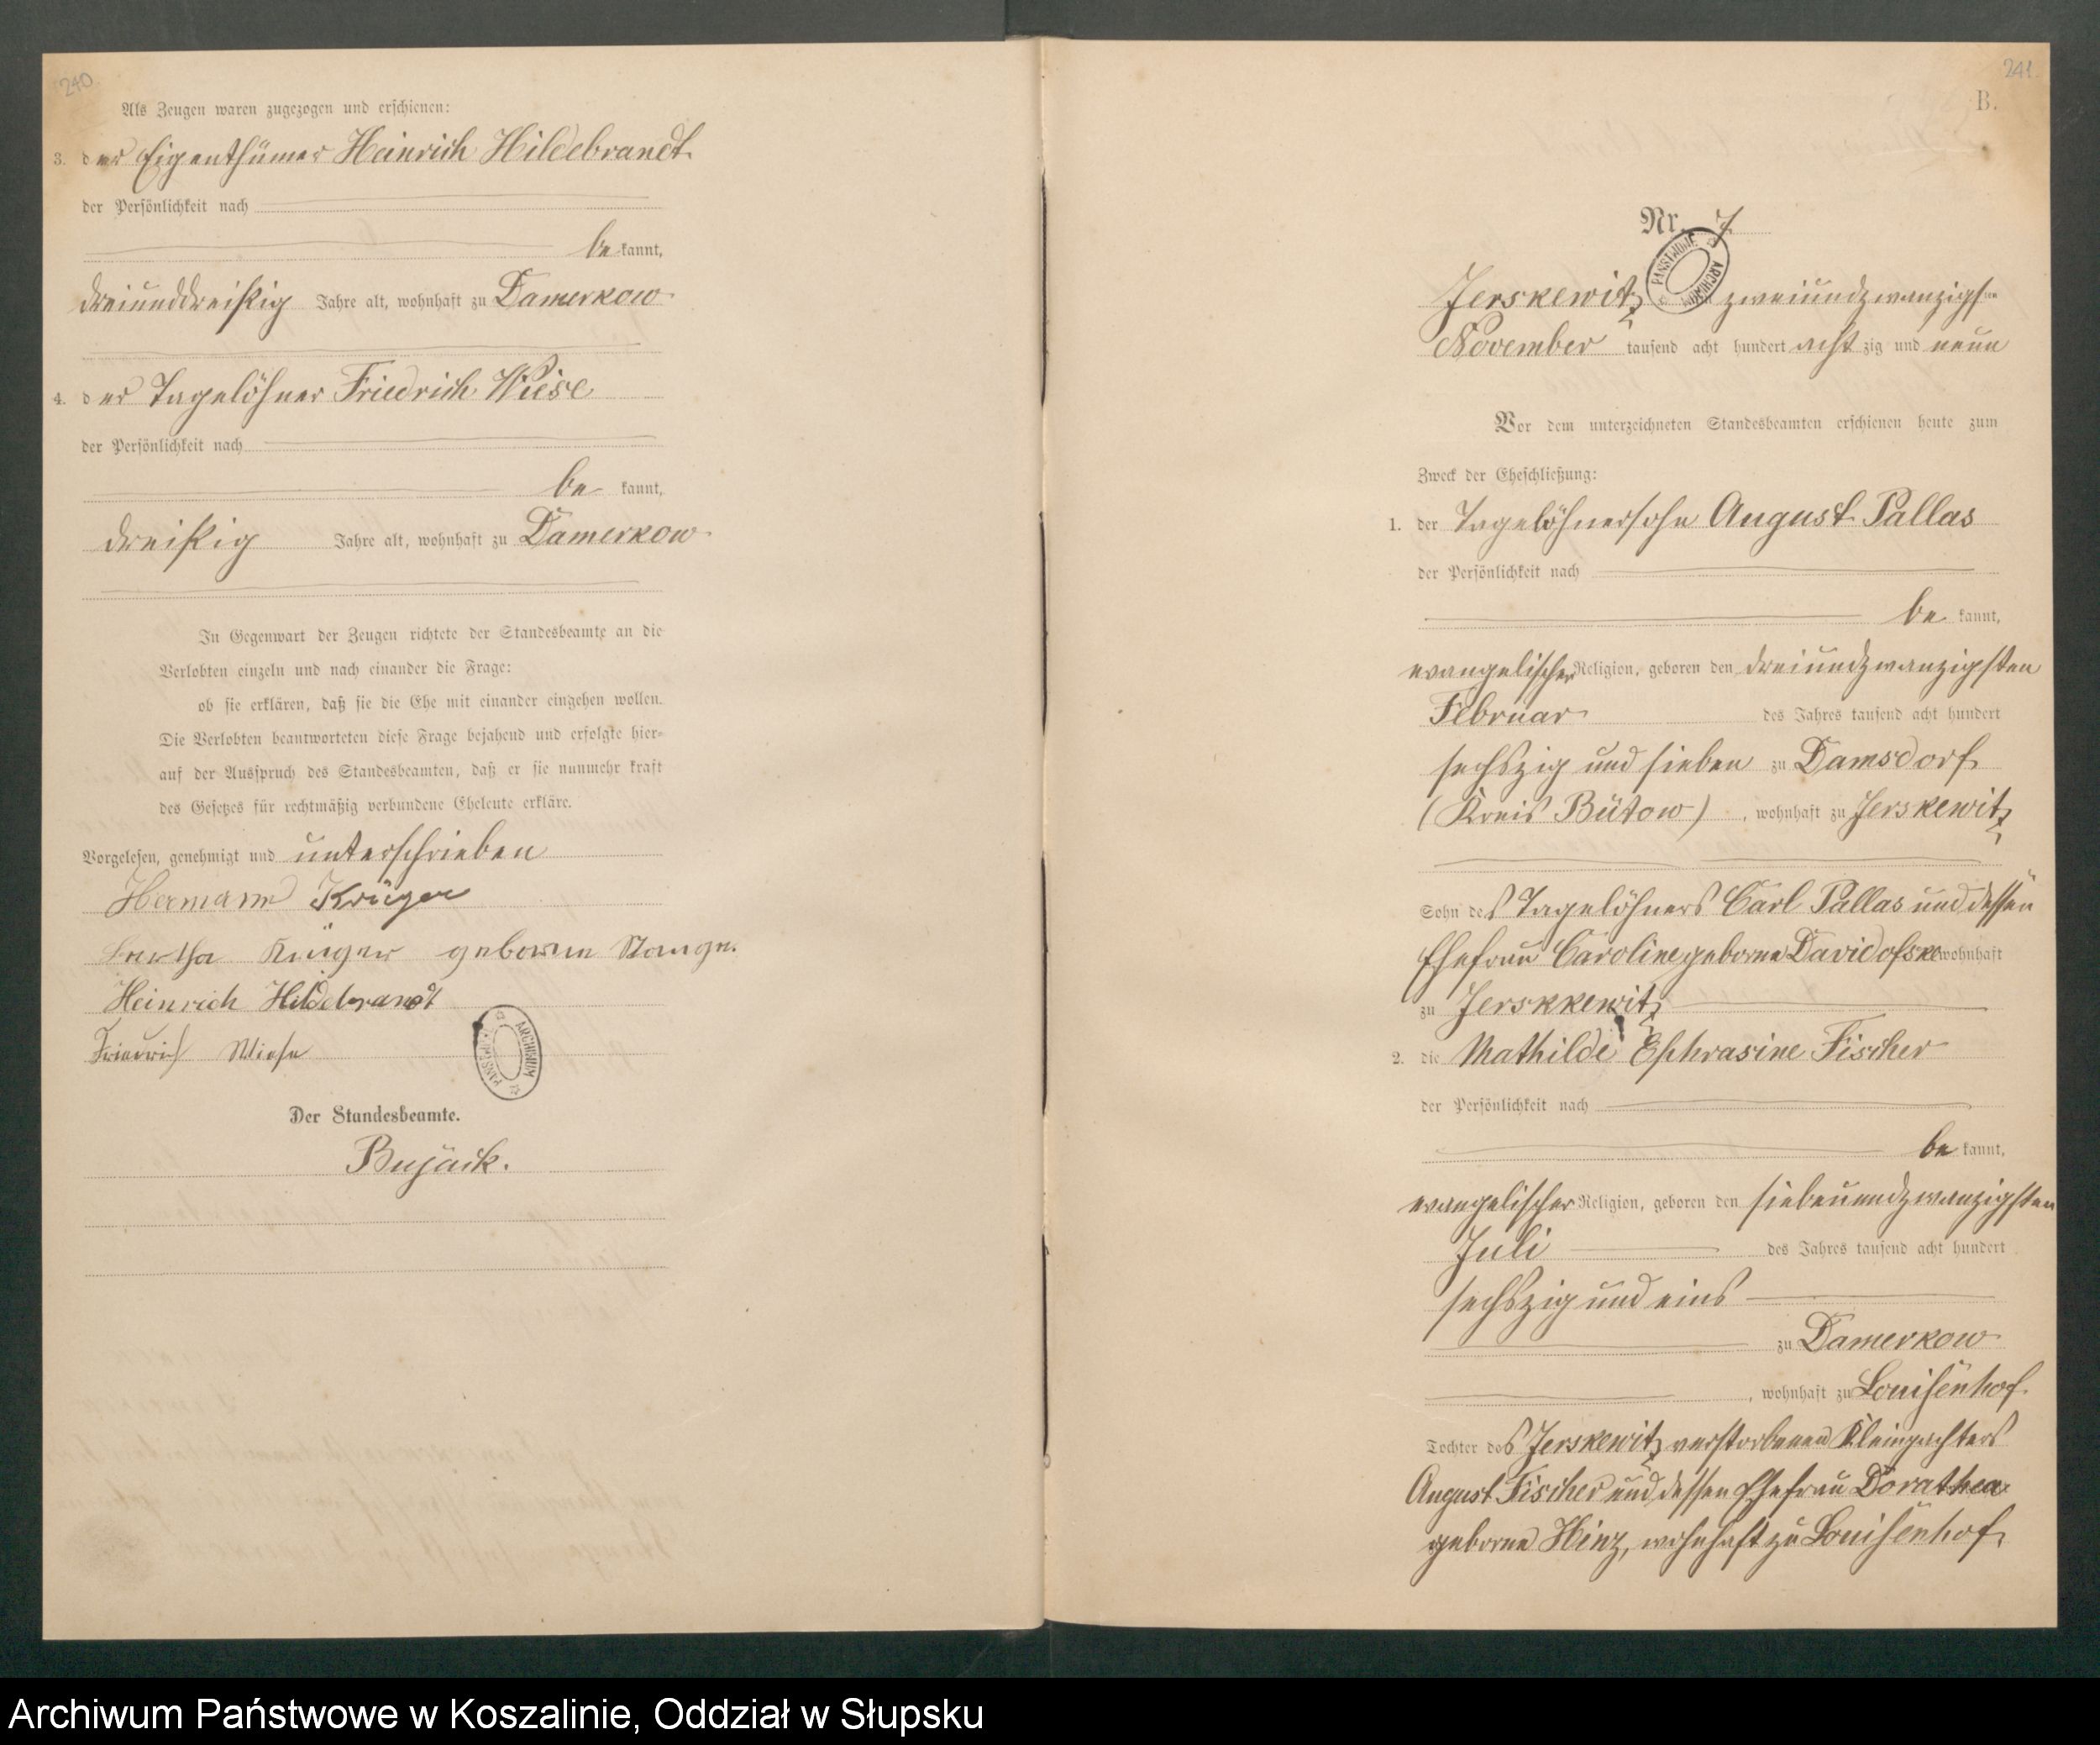 240.
Als Zeugen waren zugezogen und erschienen:
3. der Eigenthümer Heinrich Hildebrandt
der Persönlichkeit nach
be kannt,
dreiunddreißig Jahre alt, wohnhaft zu Damerkow
4. der Tagelöhner Friedrich Wiese
der Persönlichkeit nach
be kannt,
dreißig Jahre alt, wohnhaft zu Damerkow
In Gegenwart der Zeugen richtete der Standesbeamte an die
Verlobten einzeln und nach einander die Frage:
ob sie erklären, daß sie die Ehe mit einander eingehen wollen.
Die Verlobten beantworteten diese Frage bejahend und erfolgte hier-
auf der Ausspruch des Standesbeamten, daß er sie nunmehr kraft
des Gesetzes für rechtmäßig verbundene Eheleute erkläre.
Vorgelesen, genehmigt und unterschrieben
Hermann Krüger
Krüger geborene Stange.
Heinrich Hildebrandt
Friedrich Wiese
ARCHIWUM PAŃSTWOWE
Der Standesbeamte.
Bujack.
241.
B.
Nr. 7.
ARCHIWUM PAŃSTWOWE
Jerskewitz am zweiundzwanzigsten
November tausend acht hundert acht zig und neun
Vor dem unterzeichneten Standesbeamten erschienen heute zum
Zweck der Eheschließung:
1. der Tagelöhnersohn August Pallas
der Persönlichkeit nach
be kannt,
evangelischer Religion, geboren den dreiundzwanzigsten
Februar des Jahres tausend acht hundert
sechszig und sieben zu Damsdorf
(Kreis Bütow), wohnhaft zu Jerskewitz
Sohn des Tagelöhners Carl Pallas und dessen
Ehefrau Caroline geborne Davidofske wohnhaft
zu Jerskkewitz
2. die Mathilde Ephrasine Fischer
der Persönlichkeit nach
be kannt,
evangelischer Religion, geboren den siebenundzwanzigsten
Juli des Jahres tausend acht hundert
sechszig und eins
zu Damerkow
, wohnhaft zu Louisenhof.
Tochter des Jerskewitz verstorbenen Kleinpachters
August Fischer und dessen Ehefrau Dorathea
geborne Hinz, wohnhaft zu Louisenhof,
Archiwum Państwowe w Koszalinie, Oddział w Słupsku